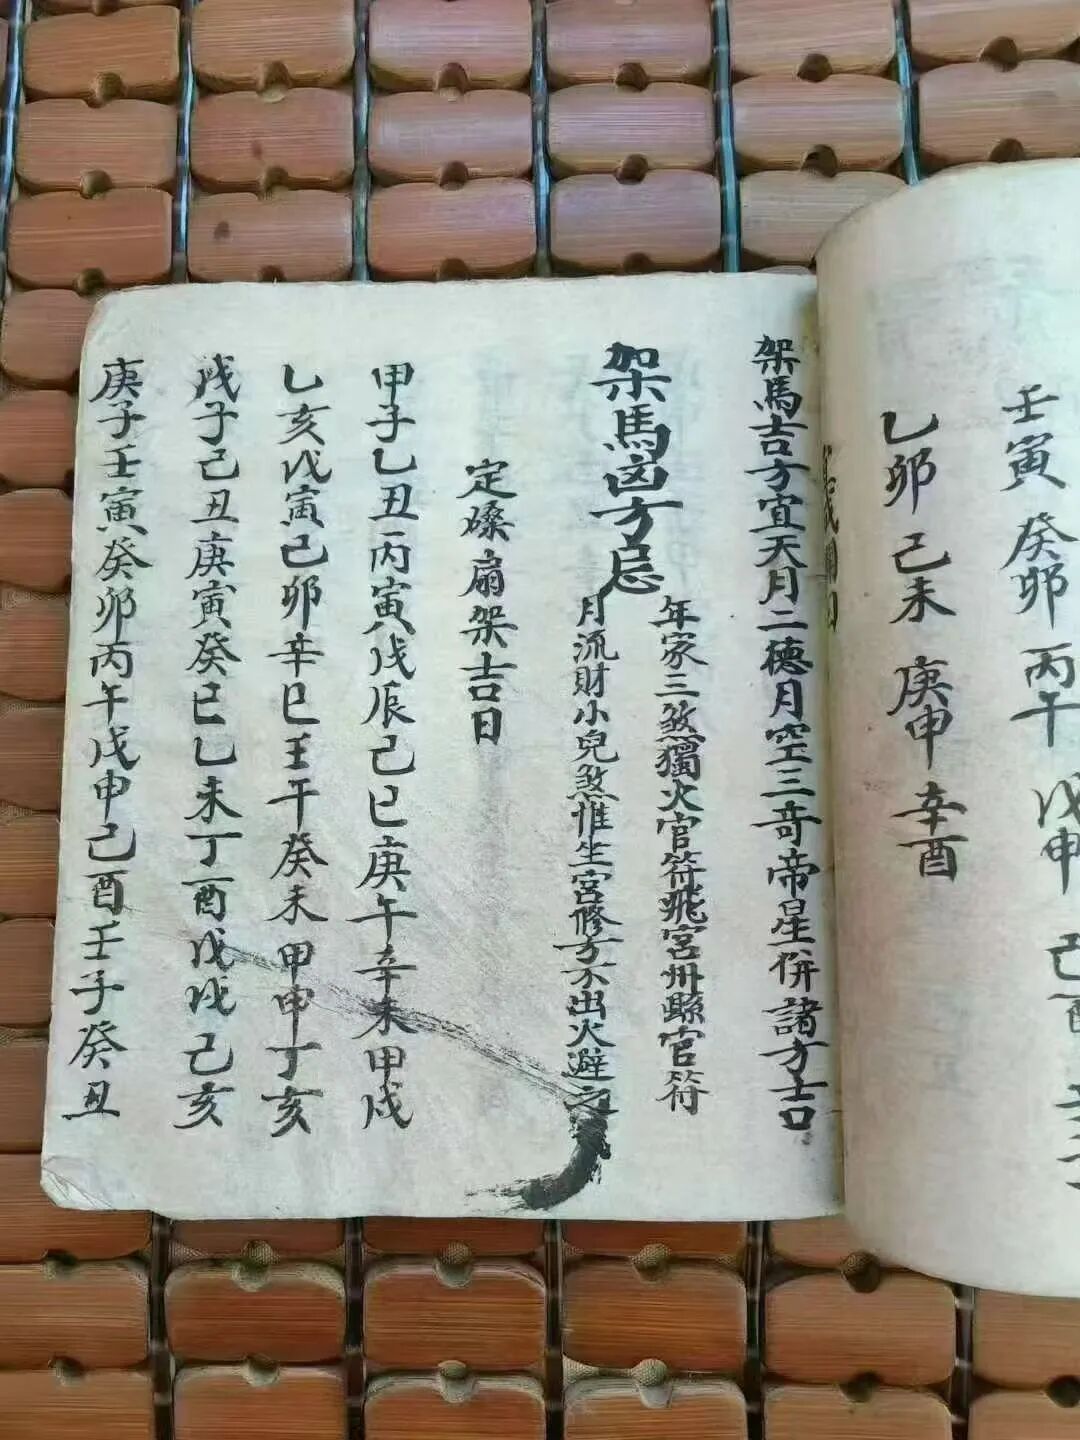 壬寅癸卯丙午戊申己酉
乙卯己未庚申辛酉
架馬吉方宜天月二德月空三奇帝星併諸方吉
架馬凶方忌
年家三煞獨火官符飛宮州縣官符
月流財小兒煞惟坐宮修方不出火避之
定磉扇架吉日
甲子乙丑丙寅戊辰己巳庚午辛未甲戌
乙亥戊寅己卯辛巳壬午癸未甲申丁亥
戊子己丑庚寅癸巳乙未丁酉戊戌己亥
庚子壬寅癸卯丙午戊申己酉壬子癸丑